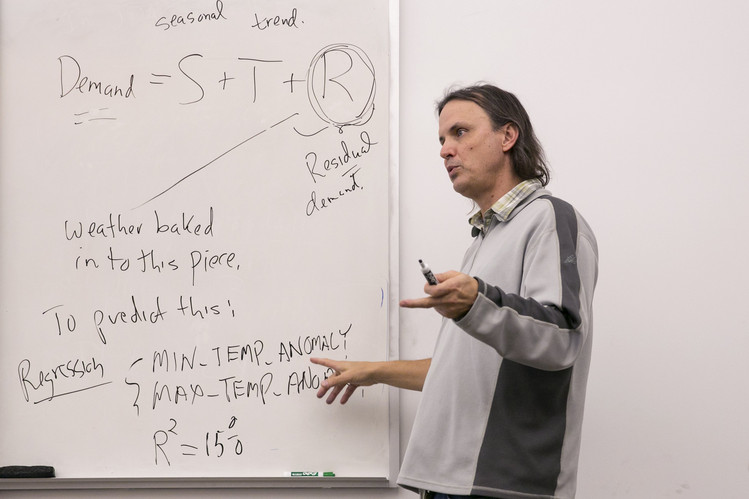 seasonal trend.
Demand = S + T + R
Residual
demand.
Weather baked
in to this piece.
To predict this:
Regression
MIN_TEMP_ANOMALY
MAX_TEMP_ANO
R² = 15%